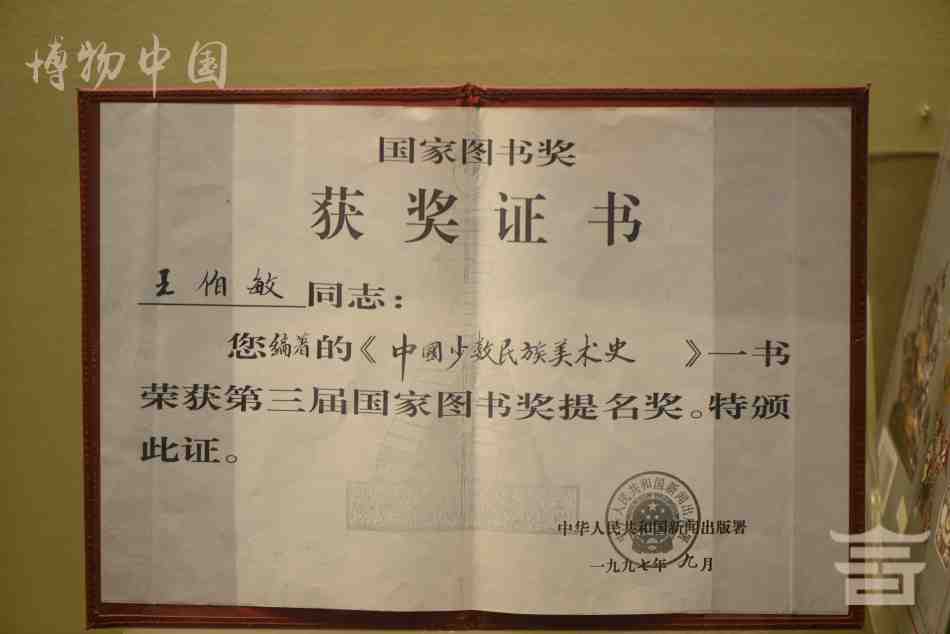 博物中国
国家图书奖
获奖证书
王伯敏同志：
您编著的《中國少数民族美术史》一书
荣获第三届国家图书奖提名奖。特颁
此证。
中华人民共和国新闻出版署
一九九七年九月